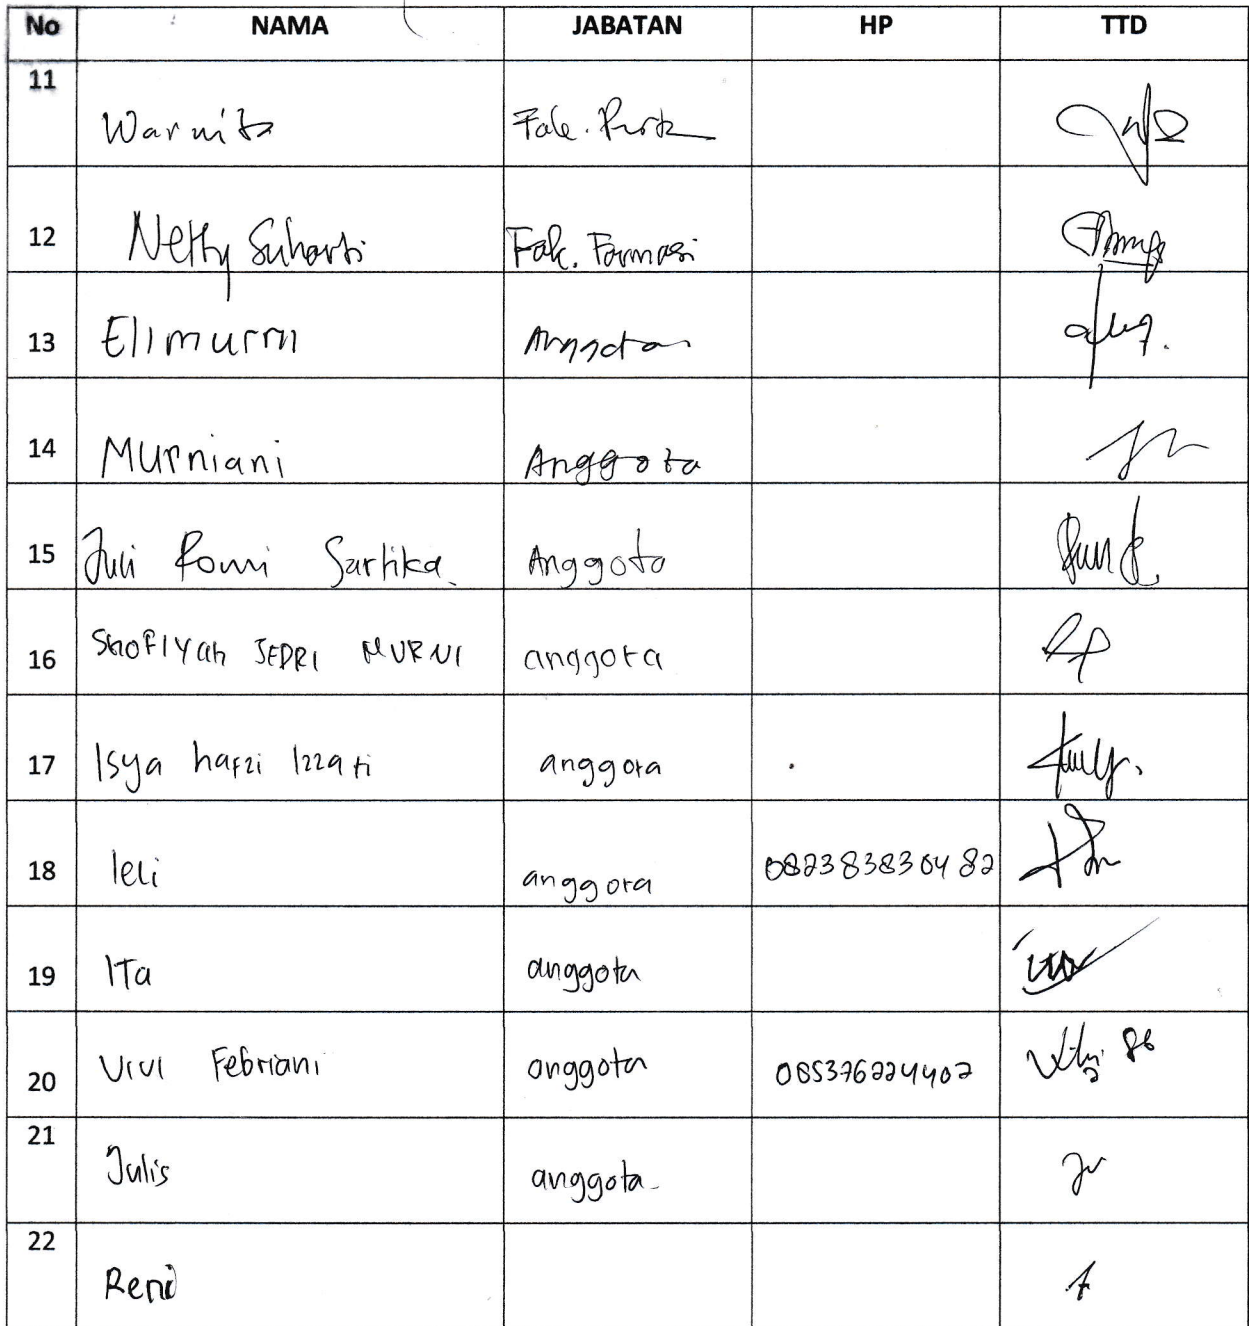 No NAMA JABATAN HP TTD
11 Warnita Fak.
12 Netty Suharti Fak. Farmasi
13 Elimurni Anggota
14 Murniani Anggota
15 Juli Romi Sartika. Anggota
16 Shofiyah JEPRI MURNI anggota
17 Isya hafzi Izzati anggota
18 leli anggota 082383830482
19 ITa anggota
20 Vivi Febriani anggota 085376224402
21 Julis anggota
22 Reni